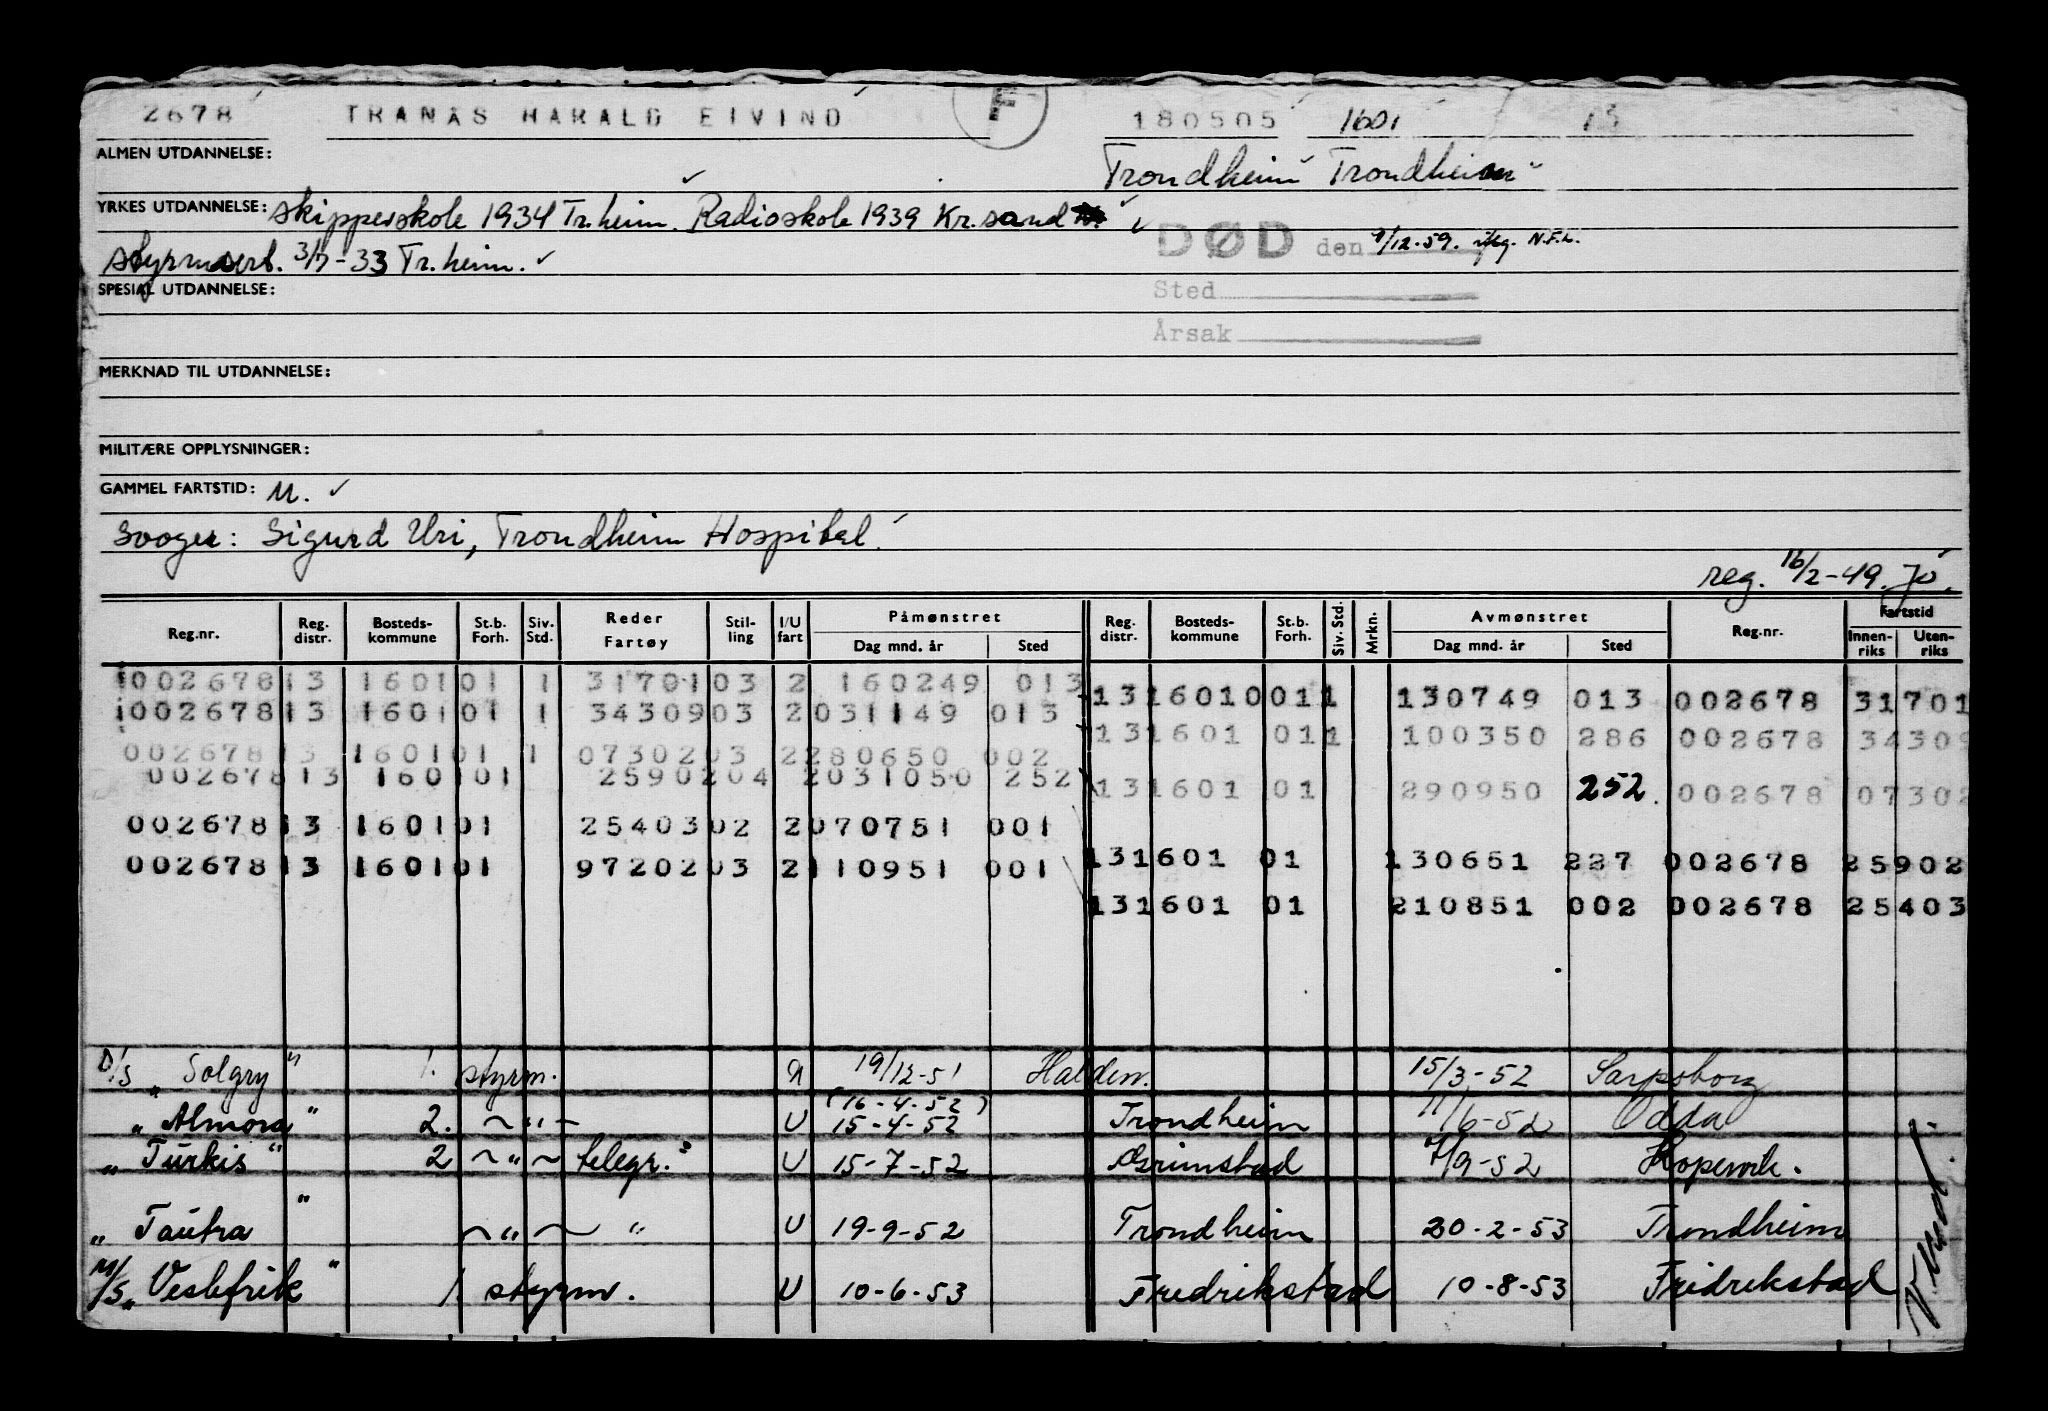 2678 TRANÅS HARALD EIVIND F 180505 1601 13
ALMEN UTDANNELSE:
Trondheim Trondheim
YRKES UTDANNELSE: skipperskole 1934 Tr.heim. Radioskole 1939 Kr.sand
styrmsert. 3/7-33 Tr.heim.
DØD den 9/12-59. N.F.L.
SPESIAL UTDANNELSE:
Sted
Årsak
MERKNAD TIL UTDANNELSE:
MILITÆRE OPPLYSNINGER:
GAMMEL FARTSTID: M.
Svoger: Sigurd Uri, Trondheim Hospital.
reg. 16/2-49. Jo.
Reg.nr. Reg. distr. Bosteds-kommune St.b. Forh. Siv. Std. Reder Fartøy Stil-ling I/U fart Påmønstret Dag mnd. år Sted Reg. distr. Bosteds-kommune St.b. Forh. Siv. Std. Mrkn. Avmønstret Dag mnd. år Sted Reg.nr. Fartstid Innen-riks Uten-riks
002678 13 1601 01 1 31701 03 2 160249 013
13 1601 001 1 130749 013 002678 31701
002678 13 1601 01 1 34309 03 2 031149 013
13 1601 01 1 100350 286 002678 34309
002678 13 1601 01 1 07302 03 2 280650 002
002678 13 1601 01 25902 04 2 031050 252
13 1601 01 290950 252. 002678 07302
002678 13 1601 01 25403 02 2 070751 001
13 1601 01 130651 227 002678 25902
002678 13 1601 01 97202 03 2 110951 001
13 1601 01 210851 002 002678 25403
D/S "Solgry" 1. styrm. U 19/12-51 Halden. 15/3-52 Sarpsborg
(16-4-52)
"Almora" 2. ~"~ U 15-4-52 Trondheim 11/6-52 Odda
"Turkis" 2 ~"~ telegr. U 15-7-52 Grimstad 4/9-52 Kopervik.
"Tautra" ~"~ " U 19-9-52 Trondheim 20-2-53 Trondheim
M/S "Veslefrik" 1 styrm. U 10-6-53 Fredrikstad 10-8-53 Fridrekstad